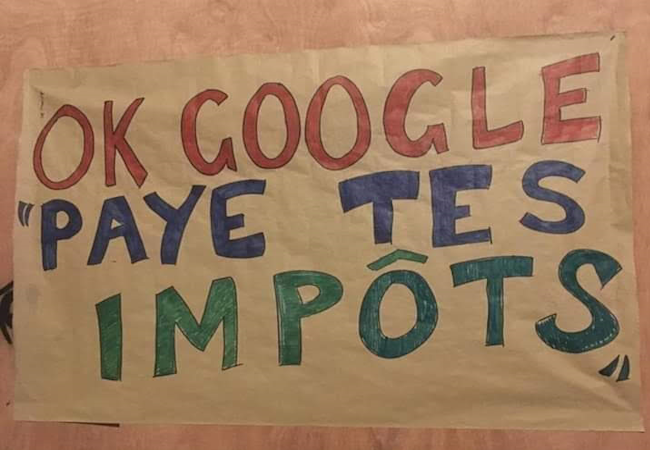 OK GOOGLE
"PAYE TES
IMPÔTS"